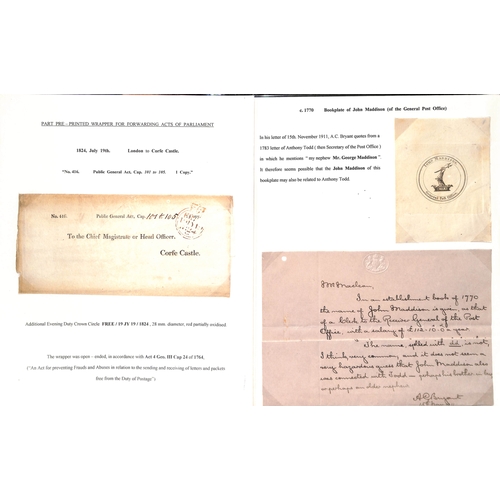 PART PRE - PRINTED WRAPPER FOR FORWARDING ACTS OF PARLIAMENT
1824, July 19th. London to Corfe Castle.
"No. 416. Public General Act, Cap. 101 to 105. 1 Copy."
No. 416. Public General Act, Cap. 101 & 105
To the Chief Magistrate or Head Officer,
Corfe Castle.
Additional Evening Duty Crown Circle FREE / 19 JY 19 / 1824 , 28 mm. diameter, red partially oxidised.
The wrapper was open - ended, in accordance with Act 4 Geo. III Cap 24 of 1764,
("An Act for preventing Frauds and Abuses in relation to the sending and receiving of letters and packets
free from the Duty of Postage").
c. 1770 Bookplate of John Maddison (of the General Post Office)
In his letter of 15th. November 1911, A.C. Bryant quotes from a
1783 letter of Anthony Todd ( then Secretary of the Post Office )
in which he mentions "my nephew Mr. George Maddison".
It therefore seems possible that the John Maddison of this
bookplate may also be related to Anthony Todd.
JOHN MADDISON
General Post Office
Mr Maclean,
In an establishment book of 1770
the name of John Maddison is given as that
of a Clerk to the Receiver General of the Post
Office, with a salary of £112.10.0 a year.
The name, spelled with dd is not,
I think, very common, and it does not seem a
very hazardous guess that John Maddison also
was connected with Todd as perhaps his brother in law
or perhaps an older nephew.
A C Bryant